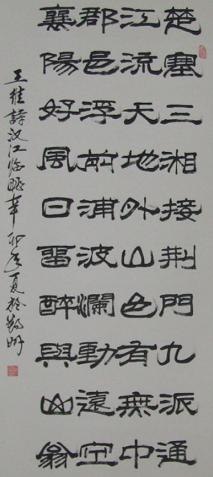 楚塞三湘接荆門九派通
江流天地外山色有無中
郡邑浮前浦波瀾動遠空
襄陽好風日留醉與山翁
王維詩汉江临眺辛卯年夏於